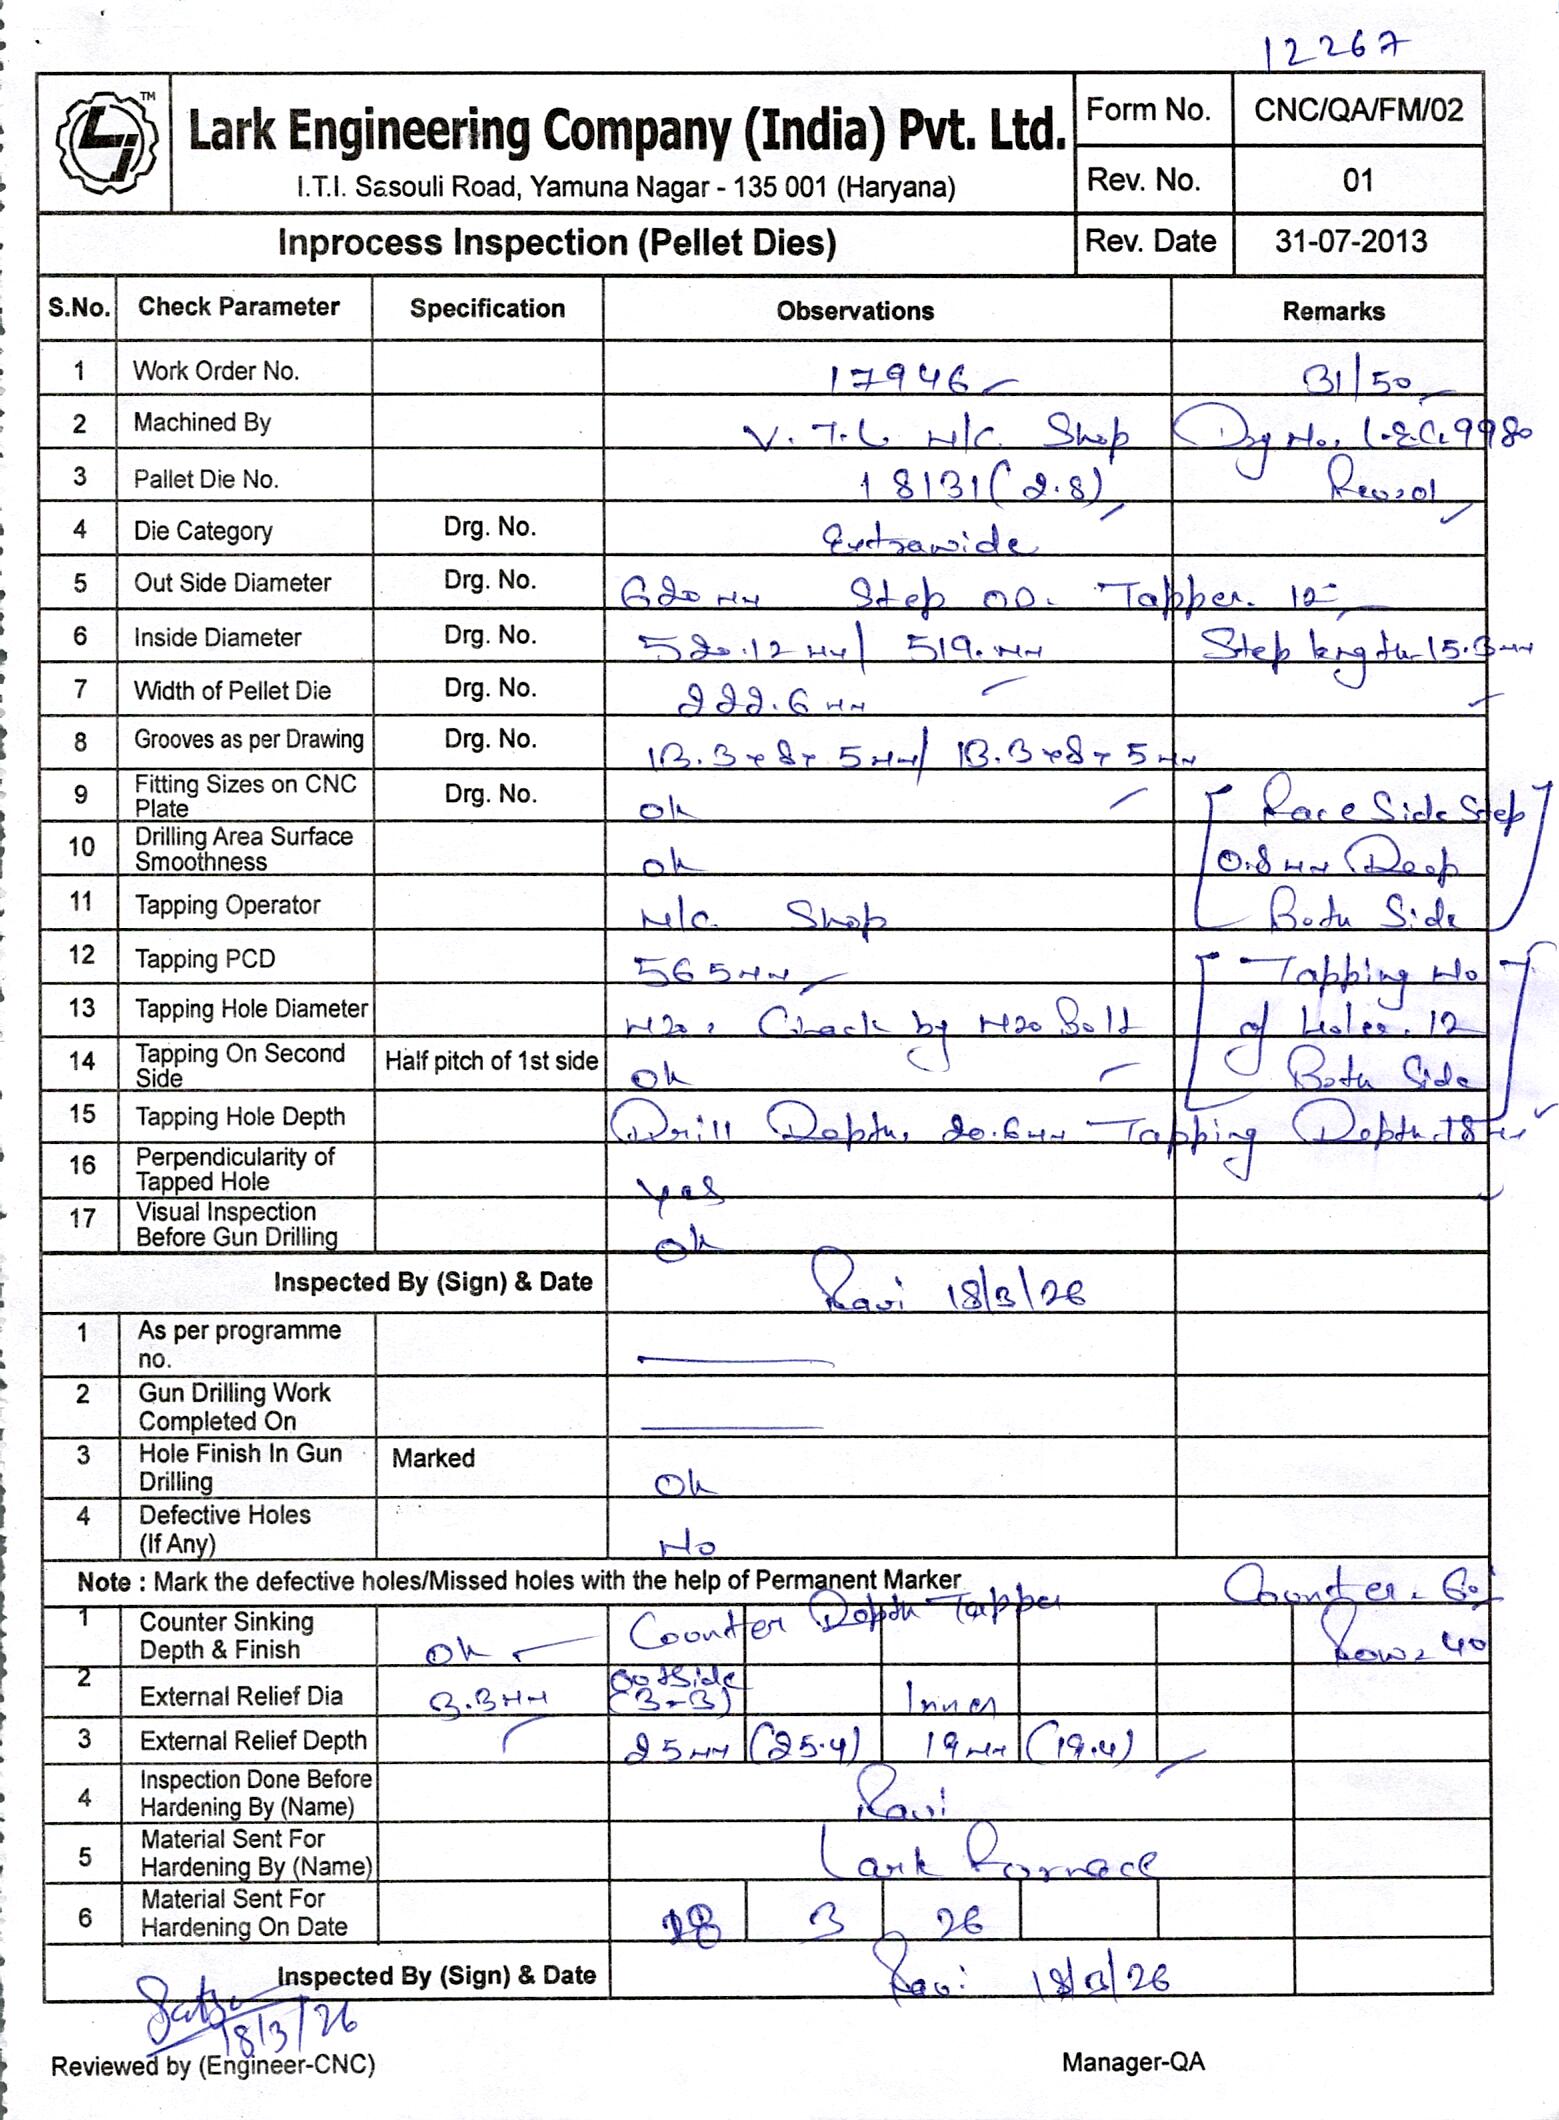 12267
Lark Engineering Company (India) Pvt. Ltd.
I.T.I. Sasouli Road, Yamuna Nagar - 135 001 (Haryana)
Form No. CNC/QA/FM/02
Rev. No. 01
Inprocess Inspection (Pellet Dies) Rev. Date 31-07-2013
S.No. Check Parameter Specification Observations Remarks
1 Work Order No. 17946 31/50
2 Machined By V.T.L M/C. Shop Drg No. L.E.C. 9980
3 Pallet Die No. 18131 (2.8) Rev. 01
4 Die Category Drg. No. Extrawide
5 Out Side Diameter Drg. No. 620 mm Step OD. Tapper. 12
6 Inside Diameter Drg. No. 520.12 mm/ 519. mm Step length 15.3 mm
7 Width of Pellet Die Drg. No. 222.6 mm
8 Grooves as per Drawing Drg. No. 13.3 x 8 x 5 mm/ 13.3 x 8 x 5 mm
9 Fitting Sizes on CNC Plate Drg. No. Ok [Race Side Step
10 Drilling Area Surface Smoothness Ok 0.8 mm Deep
11 Tapping Operator M/C. Shop Both Side]
12 Tapping PCD 565 mm [Tapping No
13 Tapping Hole Diameter M20, Check by M20 Bolt of Holes. 12
14 Tapping On Second Side Half pitch of 1st side Ok Both Side]
15 Tapping Hole Depth Drill Depth, 20.6 mm Tapping Depth. 18 mm
16 Perpendicularity of Tapped Hole Yes
17 Visual Inspection Before Gun Drilling Ok
Inspected By (Sign) & Date Ravi 18/3/26
1 As per programme no.
2 Gun Drilling Work Completed On
3 Hole Finish In Gun Drilling Marked Ok
4 Defective Holes (If Any) No
Note : Mark the defective holes/Missed holes with the help of Permanent Marker Counter. 60
1 Counter Sinking Depth & Finish Ok Counter Depth Tapper Row = 40
2 External Relief Dia 3.3 mm Outside (3-3) Inner
3 External Relief Depth 25 mm (25.4) 19 mm (19.4)
4 Inspection Done Before Hardening By (Name) Ravi
5 Material Sent For Hardening By (Name) Lark Furnace
6 Material Sent For Hardening On Date 18 3 26
Inspected By (Sign) & Date Ravi 18/3/26
18/3/26
Reviewed by (Engineer-CNC) Manager-QA